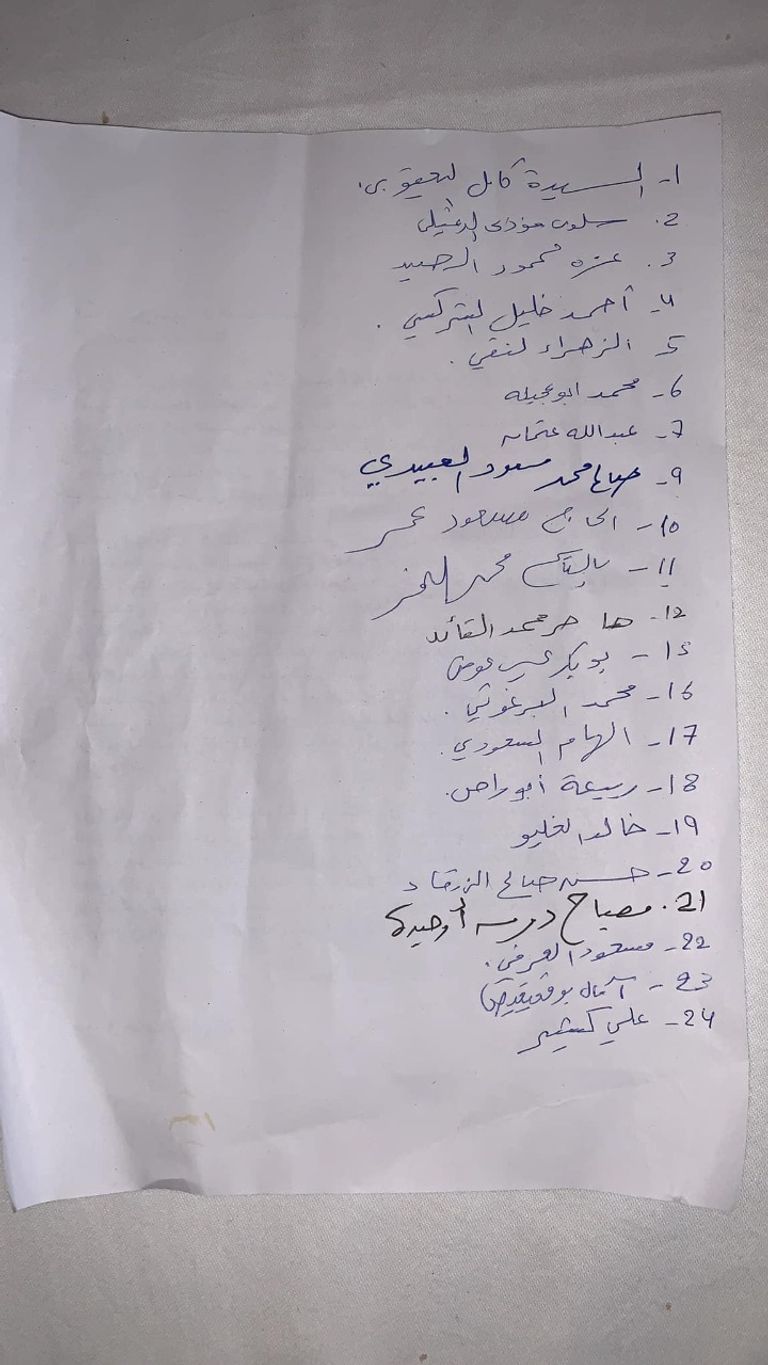 1- السيدة كامل اليعقوبي.
2. سلوى فوزي الدغيلي
3. عزه محمود الصيد
4- أحمد خليل الشركسي.
5 الزهراء لنقي.
6- محمد ابوعجيله
7- عبدالله عثمان
9- صالح محمد مسعود العبيدي
10- الحاج مسعود عمر
11- محمد
12- هاجر محمد القائد
15- بوبكر عوض
16- محمد البرغوثي.
17- الهام السعودي.
18- ربيعة أبوراص.
19- خالد الغليو
20- حسن صالح الزرقاء
21. مصباح دومه أوحيدة
22- مسعود العرفي.
23- آمال بوقعيقيص
24- علي كشير